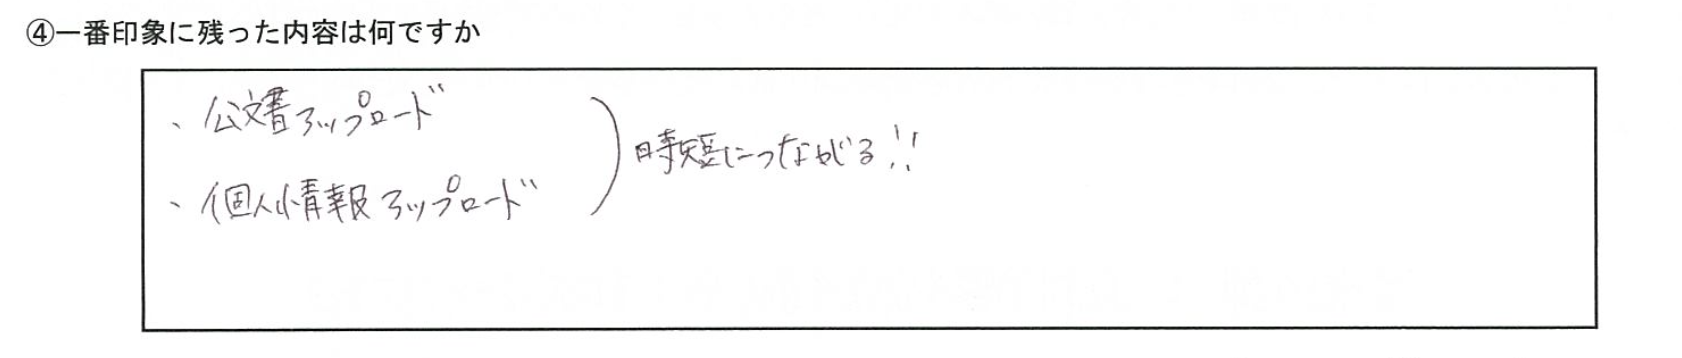 ④一番印象に残った内容は何ですか
、公文書アップロード
時短につながる!!
、個人情報アップロード